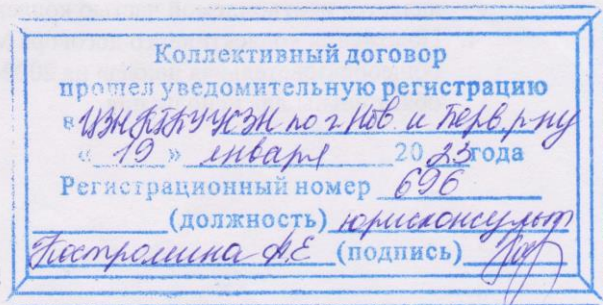 Коллективный договор
прошел уведомительную регистрацию
в по г. и р-ну
« 19 » января 20 23 года
Регистрационный номер 696
(должность) юрисконсульт
Костромина А.Е (подпись)